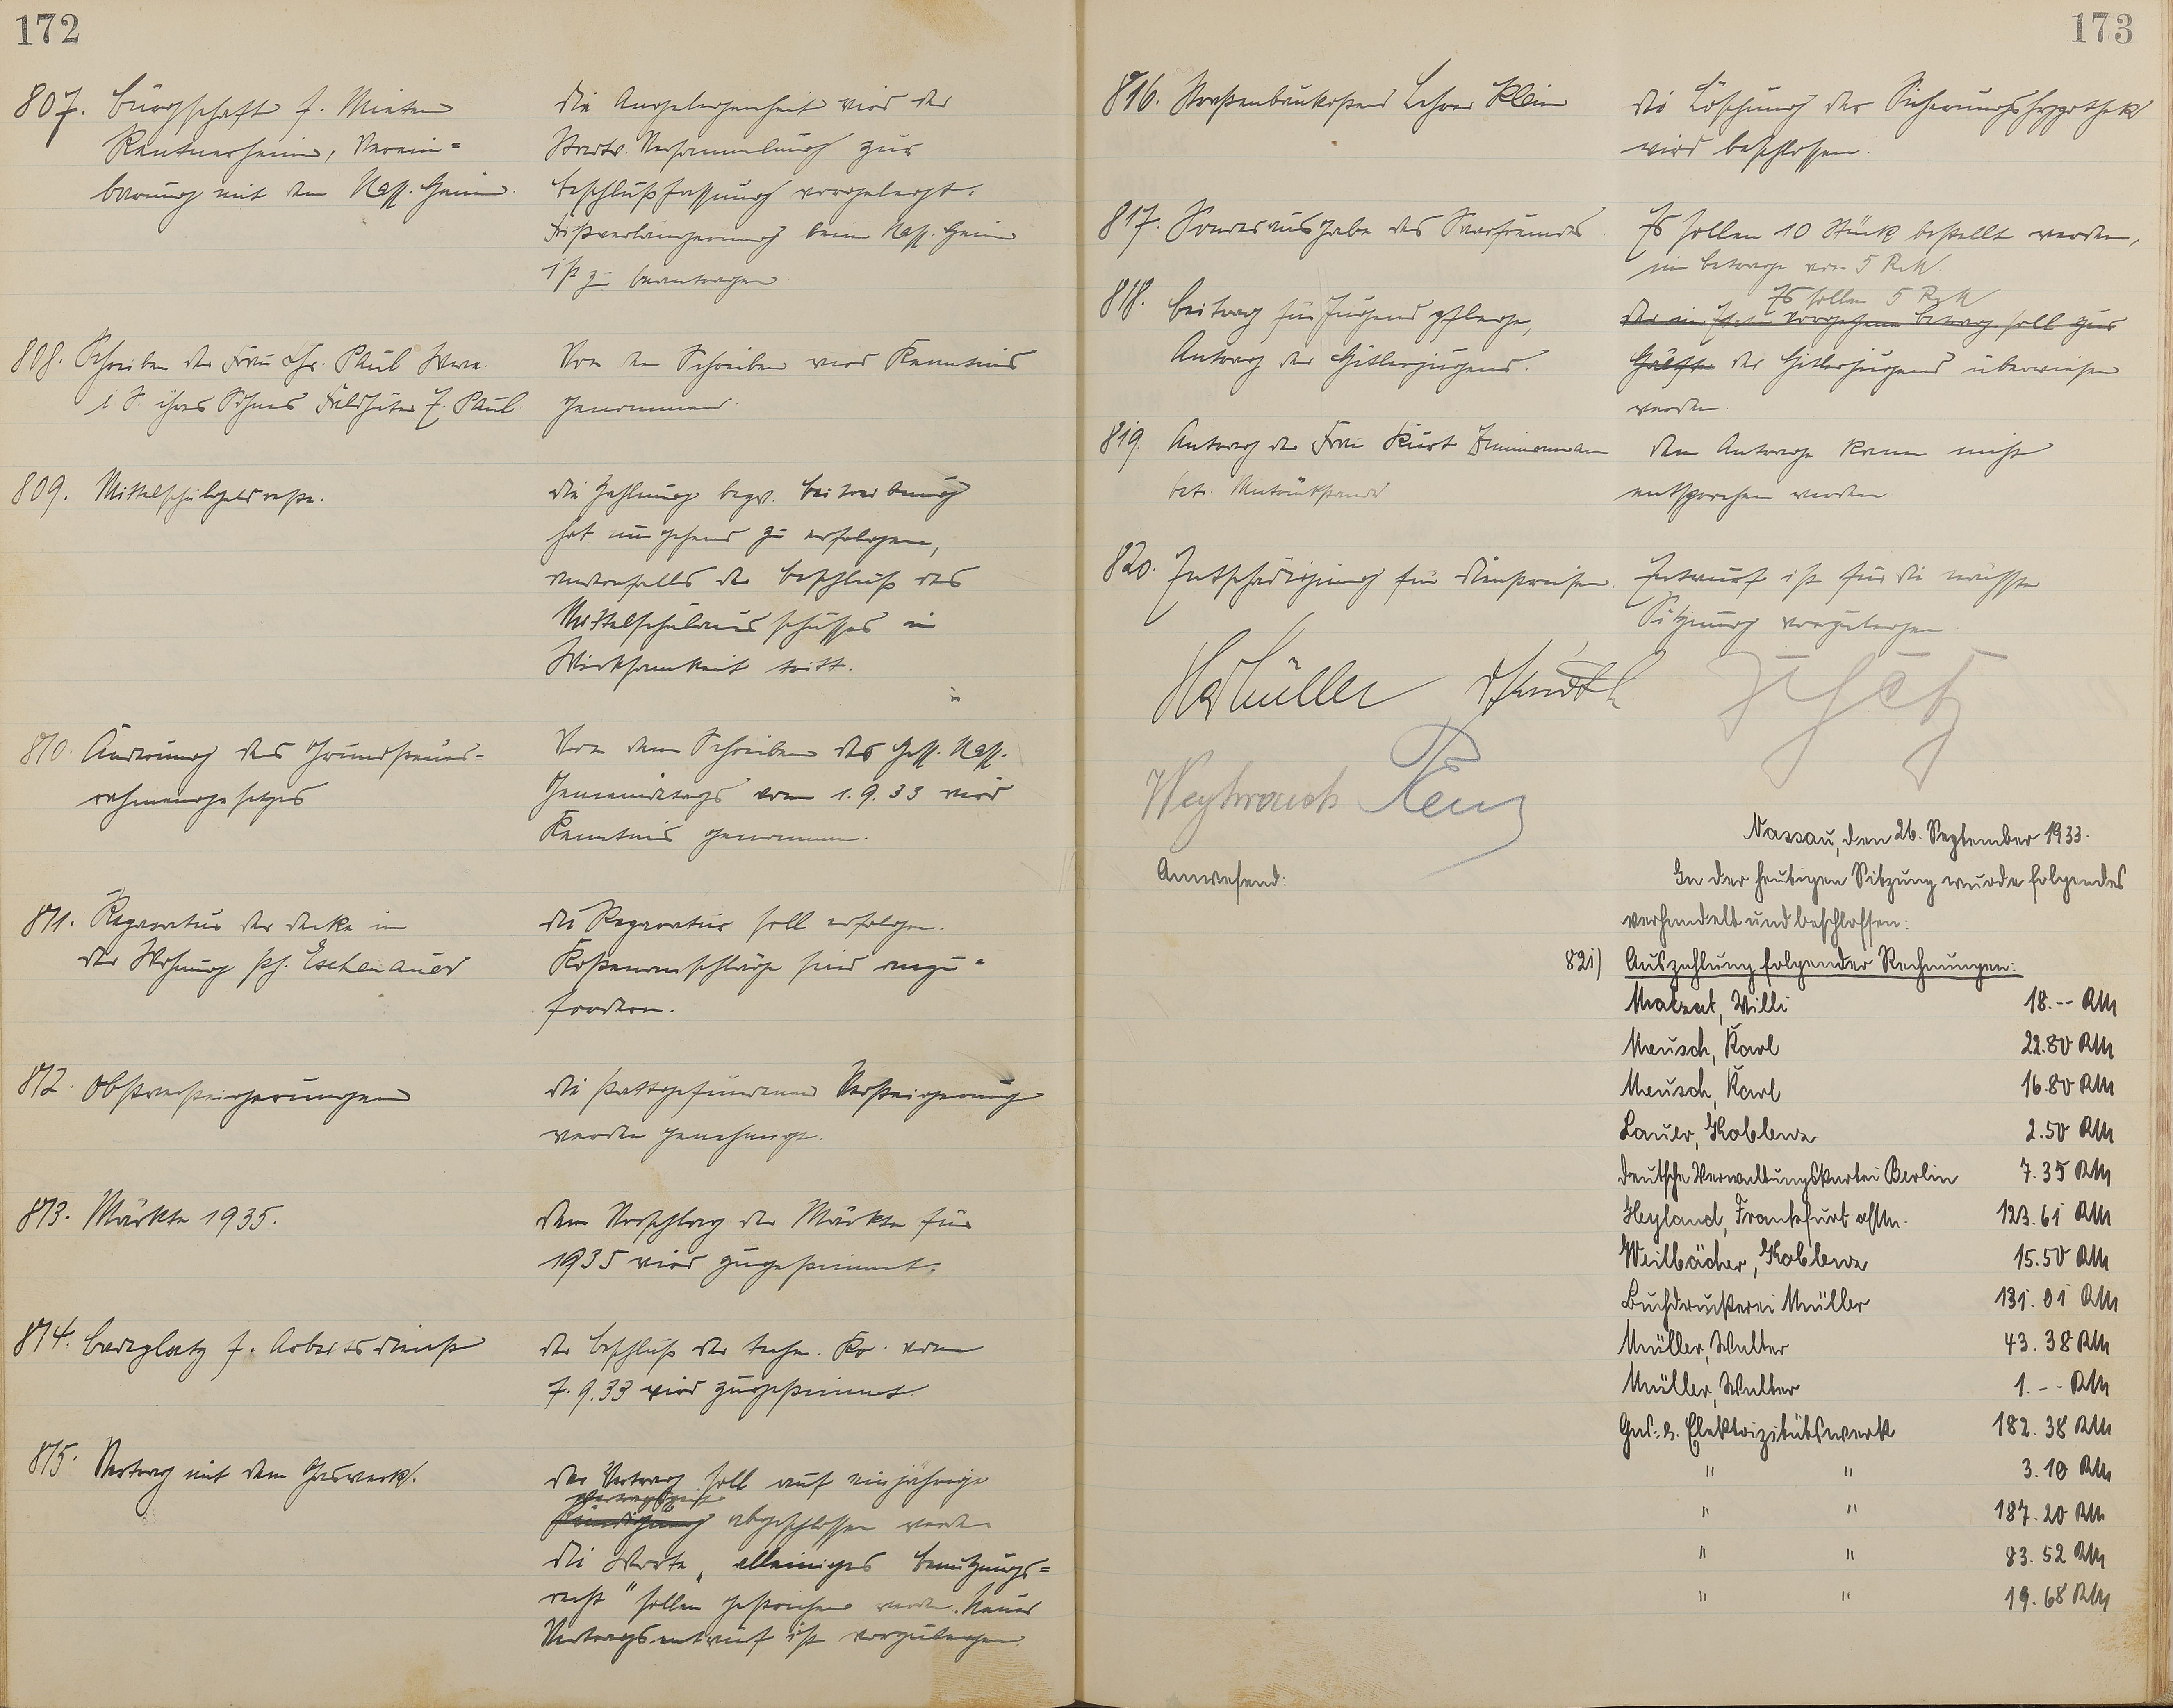 172
807. Bürgschaft f. Mieten
Rentnerheim, Verein=
barung mit dem Nass. Heim.
Die Angelegenheit wird der
Stadtv. Versammlung zur
Beschlußfassung vorgelegt.
Fristverlängerung beim Nass. Heim
ist zu beantragen
808. Schreiben der Frau Chr. Paul Wwe.
i. S. ihres Sohnes Feldhüter F. Paul.
Von dem Schreiben wird Kenntnis
genommen.
809. Mittelschulgeldreste.
Die Zahlung bezw. Beitreibung
hat umgehend zu erfolgen,
andernfalls der Beschluß des
Mittelschulausschusses in
Wirksamkeit tritt.
810. Änderung des Grundsteuer-
rahmengesetzes
Von dem Schreiben des Hess. Nass.
Gemeindetags vom 1.9.33 wird
Kenntnis genommen.
811. Reparatur der Decke in
der Wohnung Eschenauer
Die Reparatur soll erfolgen.
Kostenanschläge sind anzu=
fordern.
812. Obstversteigerungen
Die stattgefundenen Versteigerung
werden genehmigt.
813. Märkte 1935.
Dem Vorschlag der Märkte für
1935 wird zugestimmt.
814. Badeplatz f. Arbeitsdienst
Der Beschluß der techn. Ko. vom
7.9.33 wird zugestimmt.
815. Vertrag mit dem Gaswerk.
Der Vertrag soll auf einjährige
Kündigung abgeschlossen werden
Die Worte „alleiniges Benutzungs=
recht" sollen gestrichen werden. Neuer
Vertragsentwurf ist vorzulegen.
173
816. Straßenbaukosten Lehrer Klein
Die Löschung der Sicherungshypothek
wird beschlossen.
817. Sonderausgabe des Sparfreundes
Es sollen 10 Stück bestellt werden,
im Betrage von 5 RM.
818. Beitrag für Jugendpflege,
Antrag der Hitlerjugend.
Es sollen 5 RM
der im Etat vorgesehene Betrag soll zur
Hälfte der Hitlerjugend überwiesen
werden.
819. Antrag der Frau Kurt Zimmermann
betr. Mietrückstand
Dem Antrage kann nicht
entsprochen werden
820. Entschädigung für Dienstreisen.
Entwurf ist für die nächste
Sitzung vorzulegen.
Müller
Weyhrauch
Nassau, den 26. September 1933.
Anwesend:
In der heutigen Sitzung wurde folgendes
verhandelt und beschlossen:
821) Auszahlung folgender Rechnungen:
Matzat, Willi 18.-- RM
Meusch, Karl 22.80 RM
Meusch, Karl 16.80 RM
Lauer, Koblenz 2.50 RM
Deutsche Verwaltungskartei Berlin 7.35 RM
Heyland, Frankfurt a/M. 123.61 RM
Weilbächer, Koblenz 15.50 RM
Buchdruckerei Müller 131.01 RM
Müller, Walter 43.38 RM
Müller, Walter 1.-- RM
Gas- u. Elektrizitätswerk 182.38 RM
" " 3.10 RM
" " 187.20 RM
" " 83.52 RM
" " 19.68 RM